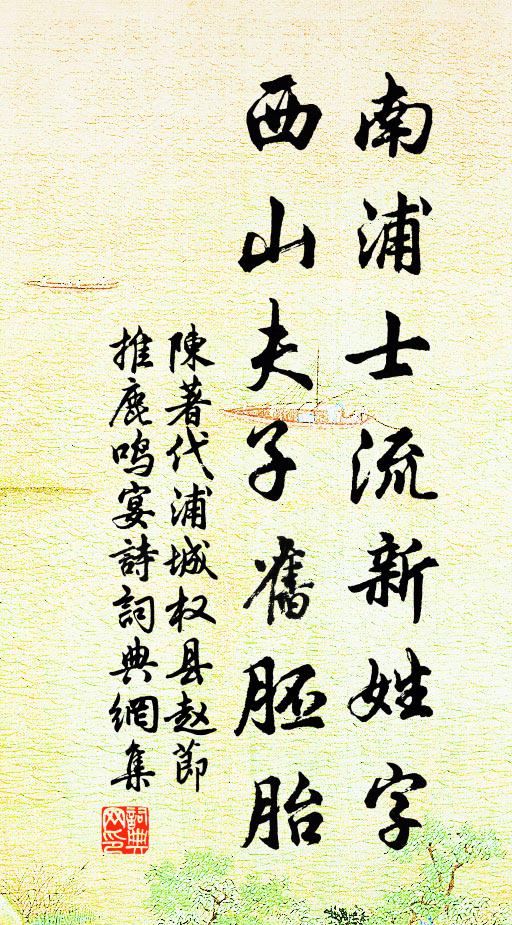 南浦士流新姓字
西山夫子舊胚胎
陳著代浦城权县赵節
推鹿鸣宴詩詞典網集
詞典网印